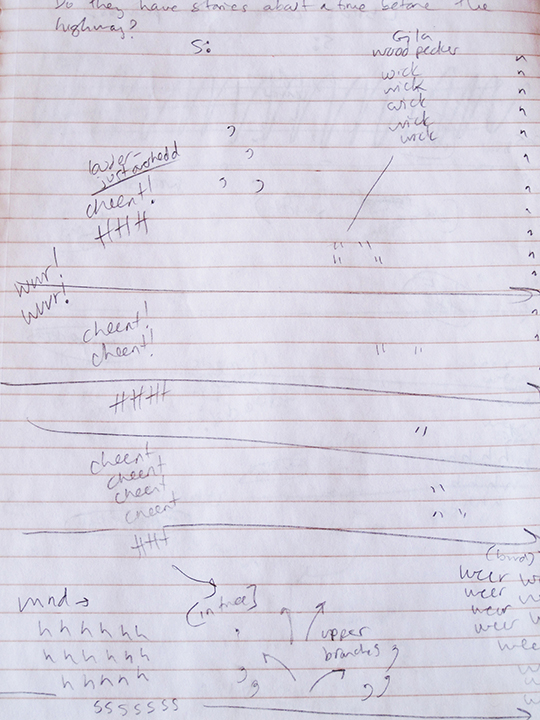 Do they have stories about a time before the
highway?
S:
Gila
woodpecker
wick
wick
wick
wick
wick
louder-
just overhead
cheent!
HHH
wur!
wur!
cheent!
cheent!
HHHH
cheent
cheent
cheent
cheent
HHH
(in tree)
upper
branches
(bird)
weer
weer
weer
weer
weer
wind →
h h h h h h
h h h h h h
h h h h h
sssssss